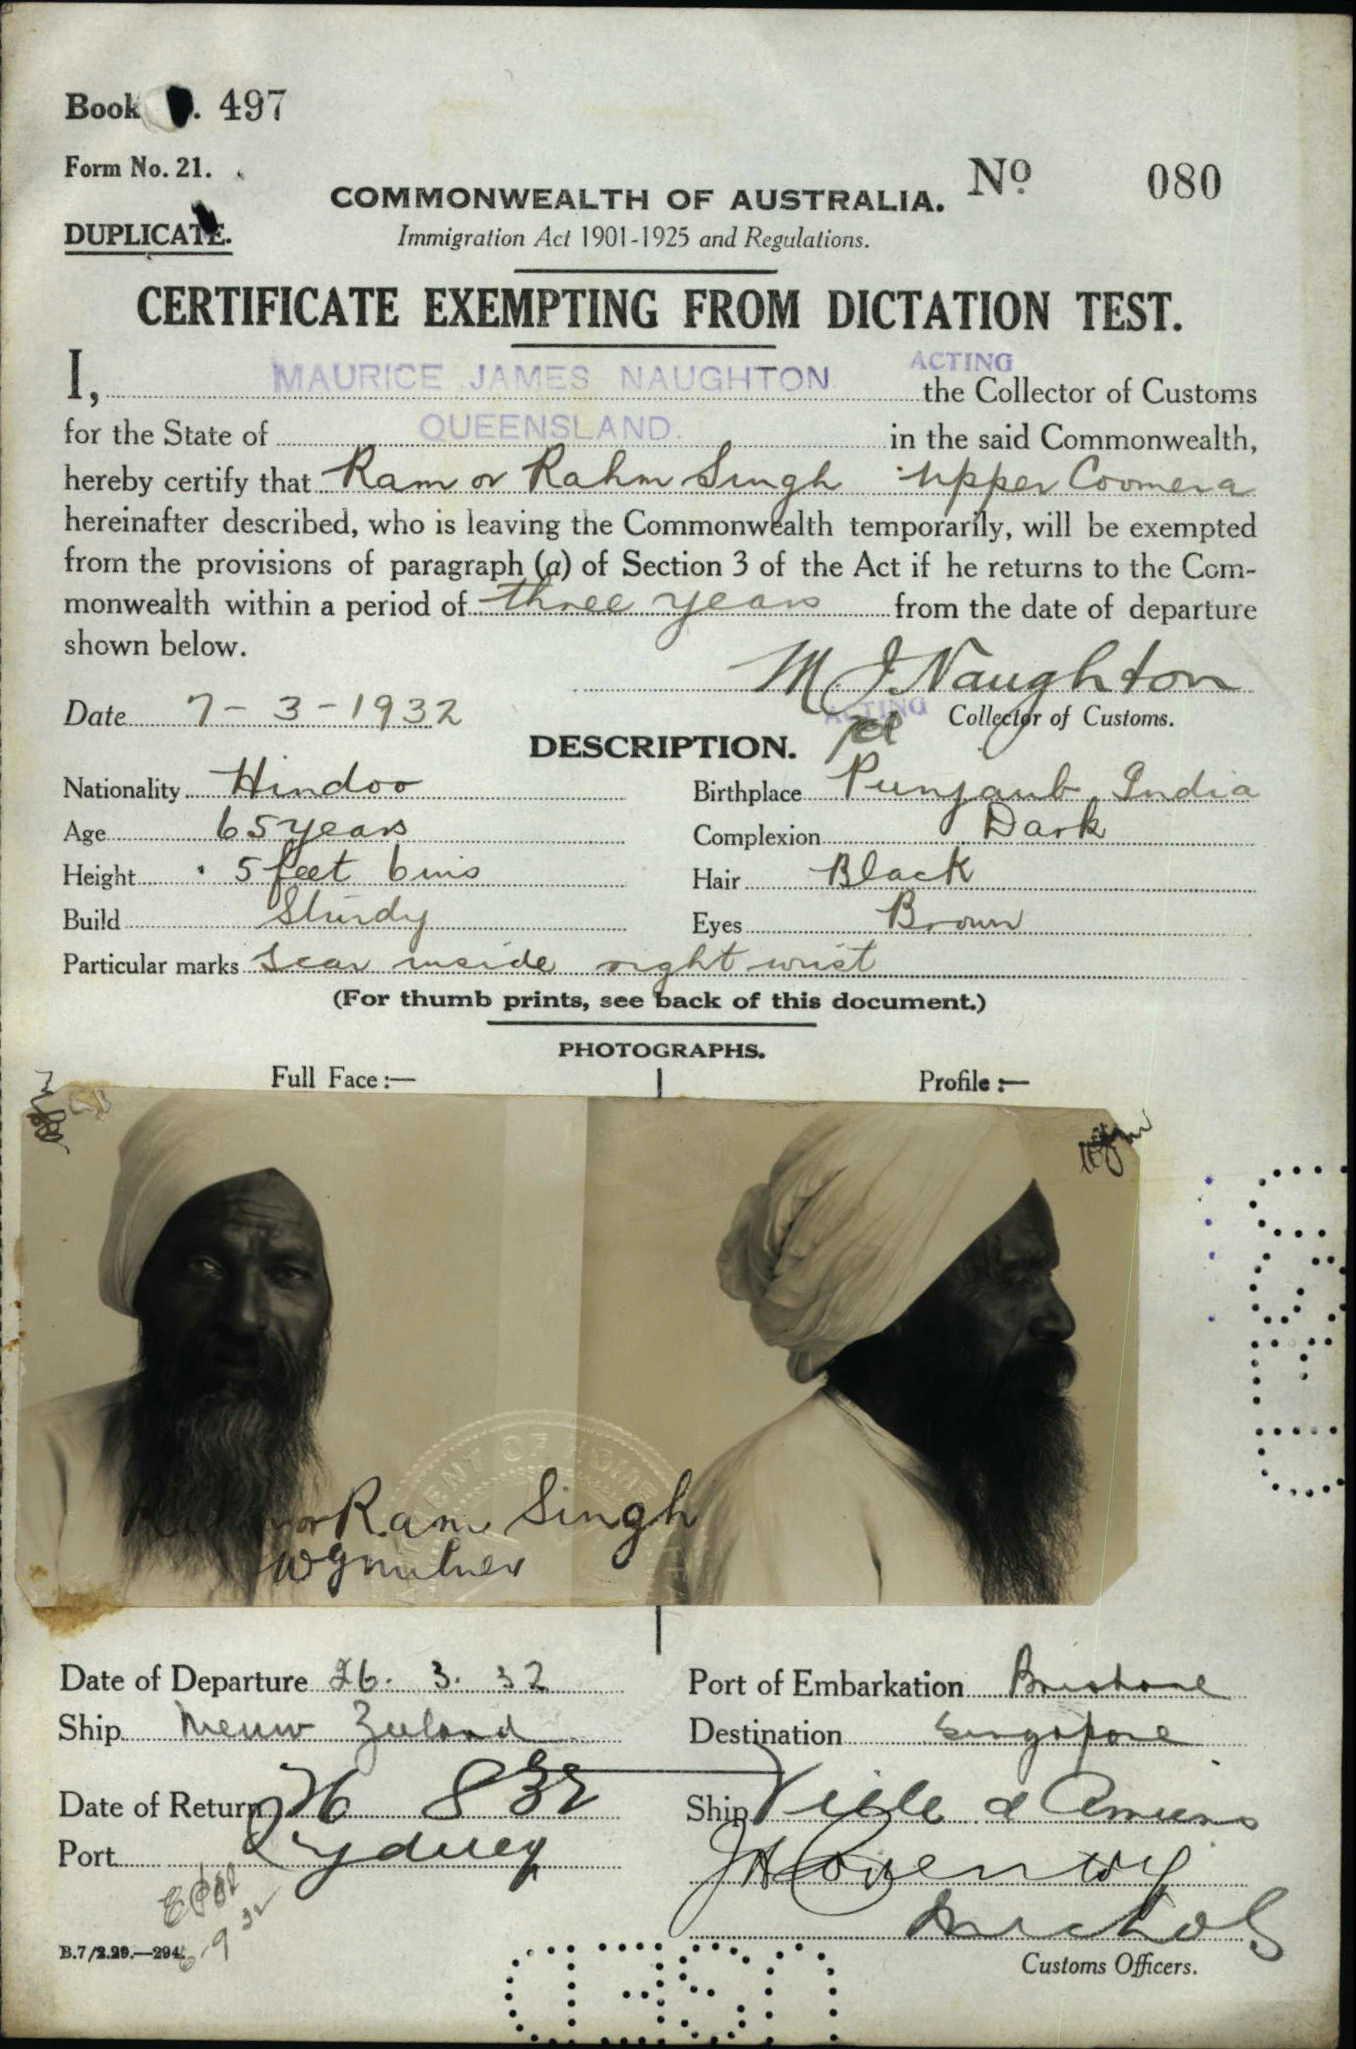 Book . 497
Form No. 21.
DUPLICATE.
COMMONWEALTH OF AUSTRALIA.
Nº 080
Immigration Act 1901-1925 and Regulations.
CERTIFICATE EXEMPTING FROM DICTATION TEST.
ACTING
I, MAURICE JAMES NAUGHTON the Collector of Customs
for the State of QUEENSLAND. in the said Commonwealth,
hereby certify that Ram or Rahm Singh Upper Coomera
hereinafter described, who is leaving the Commonwealth temporarily, will be exempted
from the provisions of paragraph (a) of Section 3 of the Act if he returns to the Com-
monwealth within a period of three years from the date of departure
shown below.
M J Naughton
Date 7-3-1932
ACTING Collector of Customs.
DESCRIPTION.
Nationality Hindoo Birthplace Punjaub India
Age 65 years Complexion Dark
Height 5 feet 6 ins Hair Black
Build Sturdy Eyes Brown
Particular marks Scar inside right wrist
(For thumb prints, see back of this document.)
PHOTOGRAPHS.
Full Face:— Profile:—
or Ram Singh
W G Milner
Date of Departure 26. 3. 32 Port of Embarkation Brisbane
Ship Nieuw Zeeland Destination Singapore
Date of Return 26 8 32 Ship Ville d Amiens
Port Sydney
Nichols
B.7/2.29.—294.
Customs Officers.